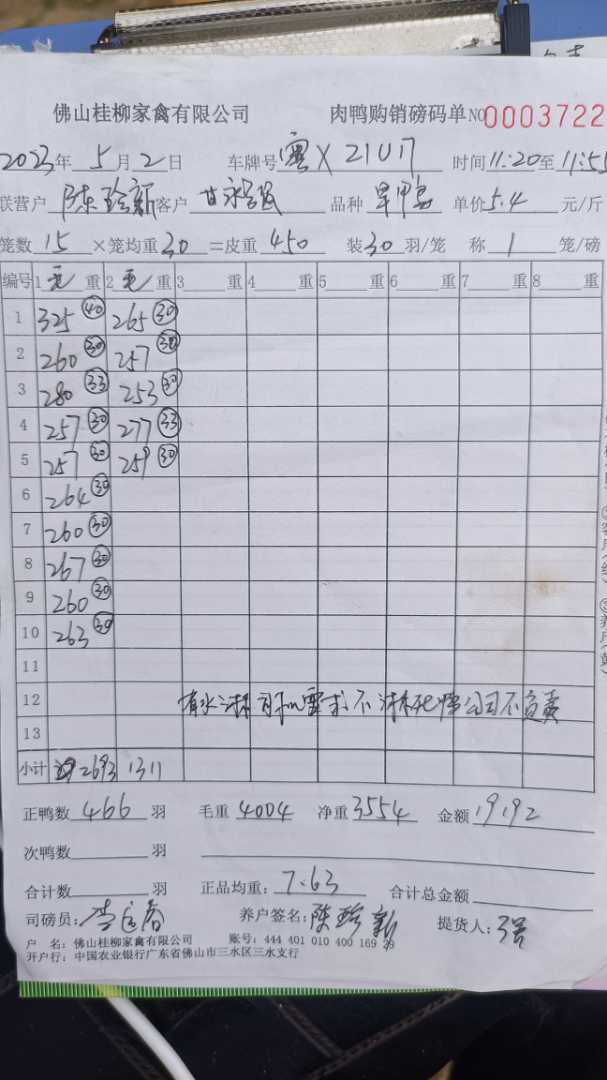 佛山桂柳家禽有限公司 肉鸭购销磅码单 NO 0003722
2023年 5月 2日 车牌号 粤X 21U17 时间 11:20 至 11:55
联营户 陈珍新 客户 品种 单价 5.4 元/斤
笼数 15 ×笼均重 30 =皮重 450 装 30 羽/笼 称 1 笼/磅
编号 1 毛 重 2 毛 重 3 重 4 重 5 重 6 重 7 重 8 重
1 325 40 265 30
2 260 30 257 30
3 280 33 253 30
4 257 30 277 33
5 257 30 259 30
6 264 30
7 260 30
8 267 30
9 260 30
10 263 30
11
12 有水淋 司机要求不淋 死归公司不负责
13
小计 2693 1311
正鸭数 466 羽 毛重 4004 净重 3554 金额 19192
次鸭数 羽
合计数 羽 正品均重: 7.63 合计总金额
司磅员: 养户签名: 陈珍新 提货人:
户 名: 佛山桂柳家禽有限公司 账号: 444 401 010 400 169 29
开户行: 中国农业银行广东省佛山市三水区三水支行